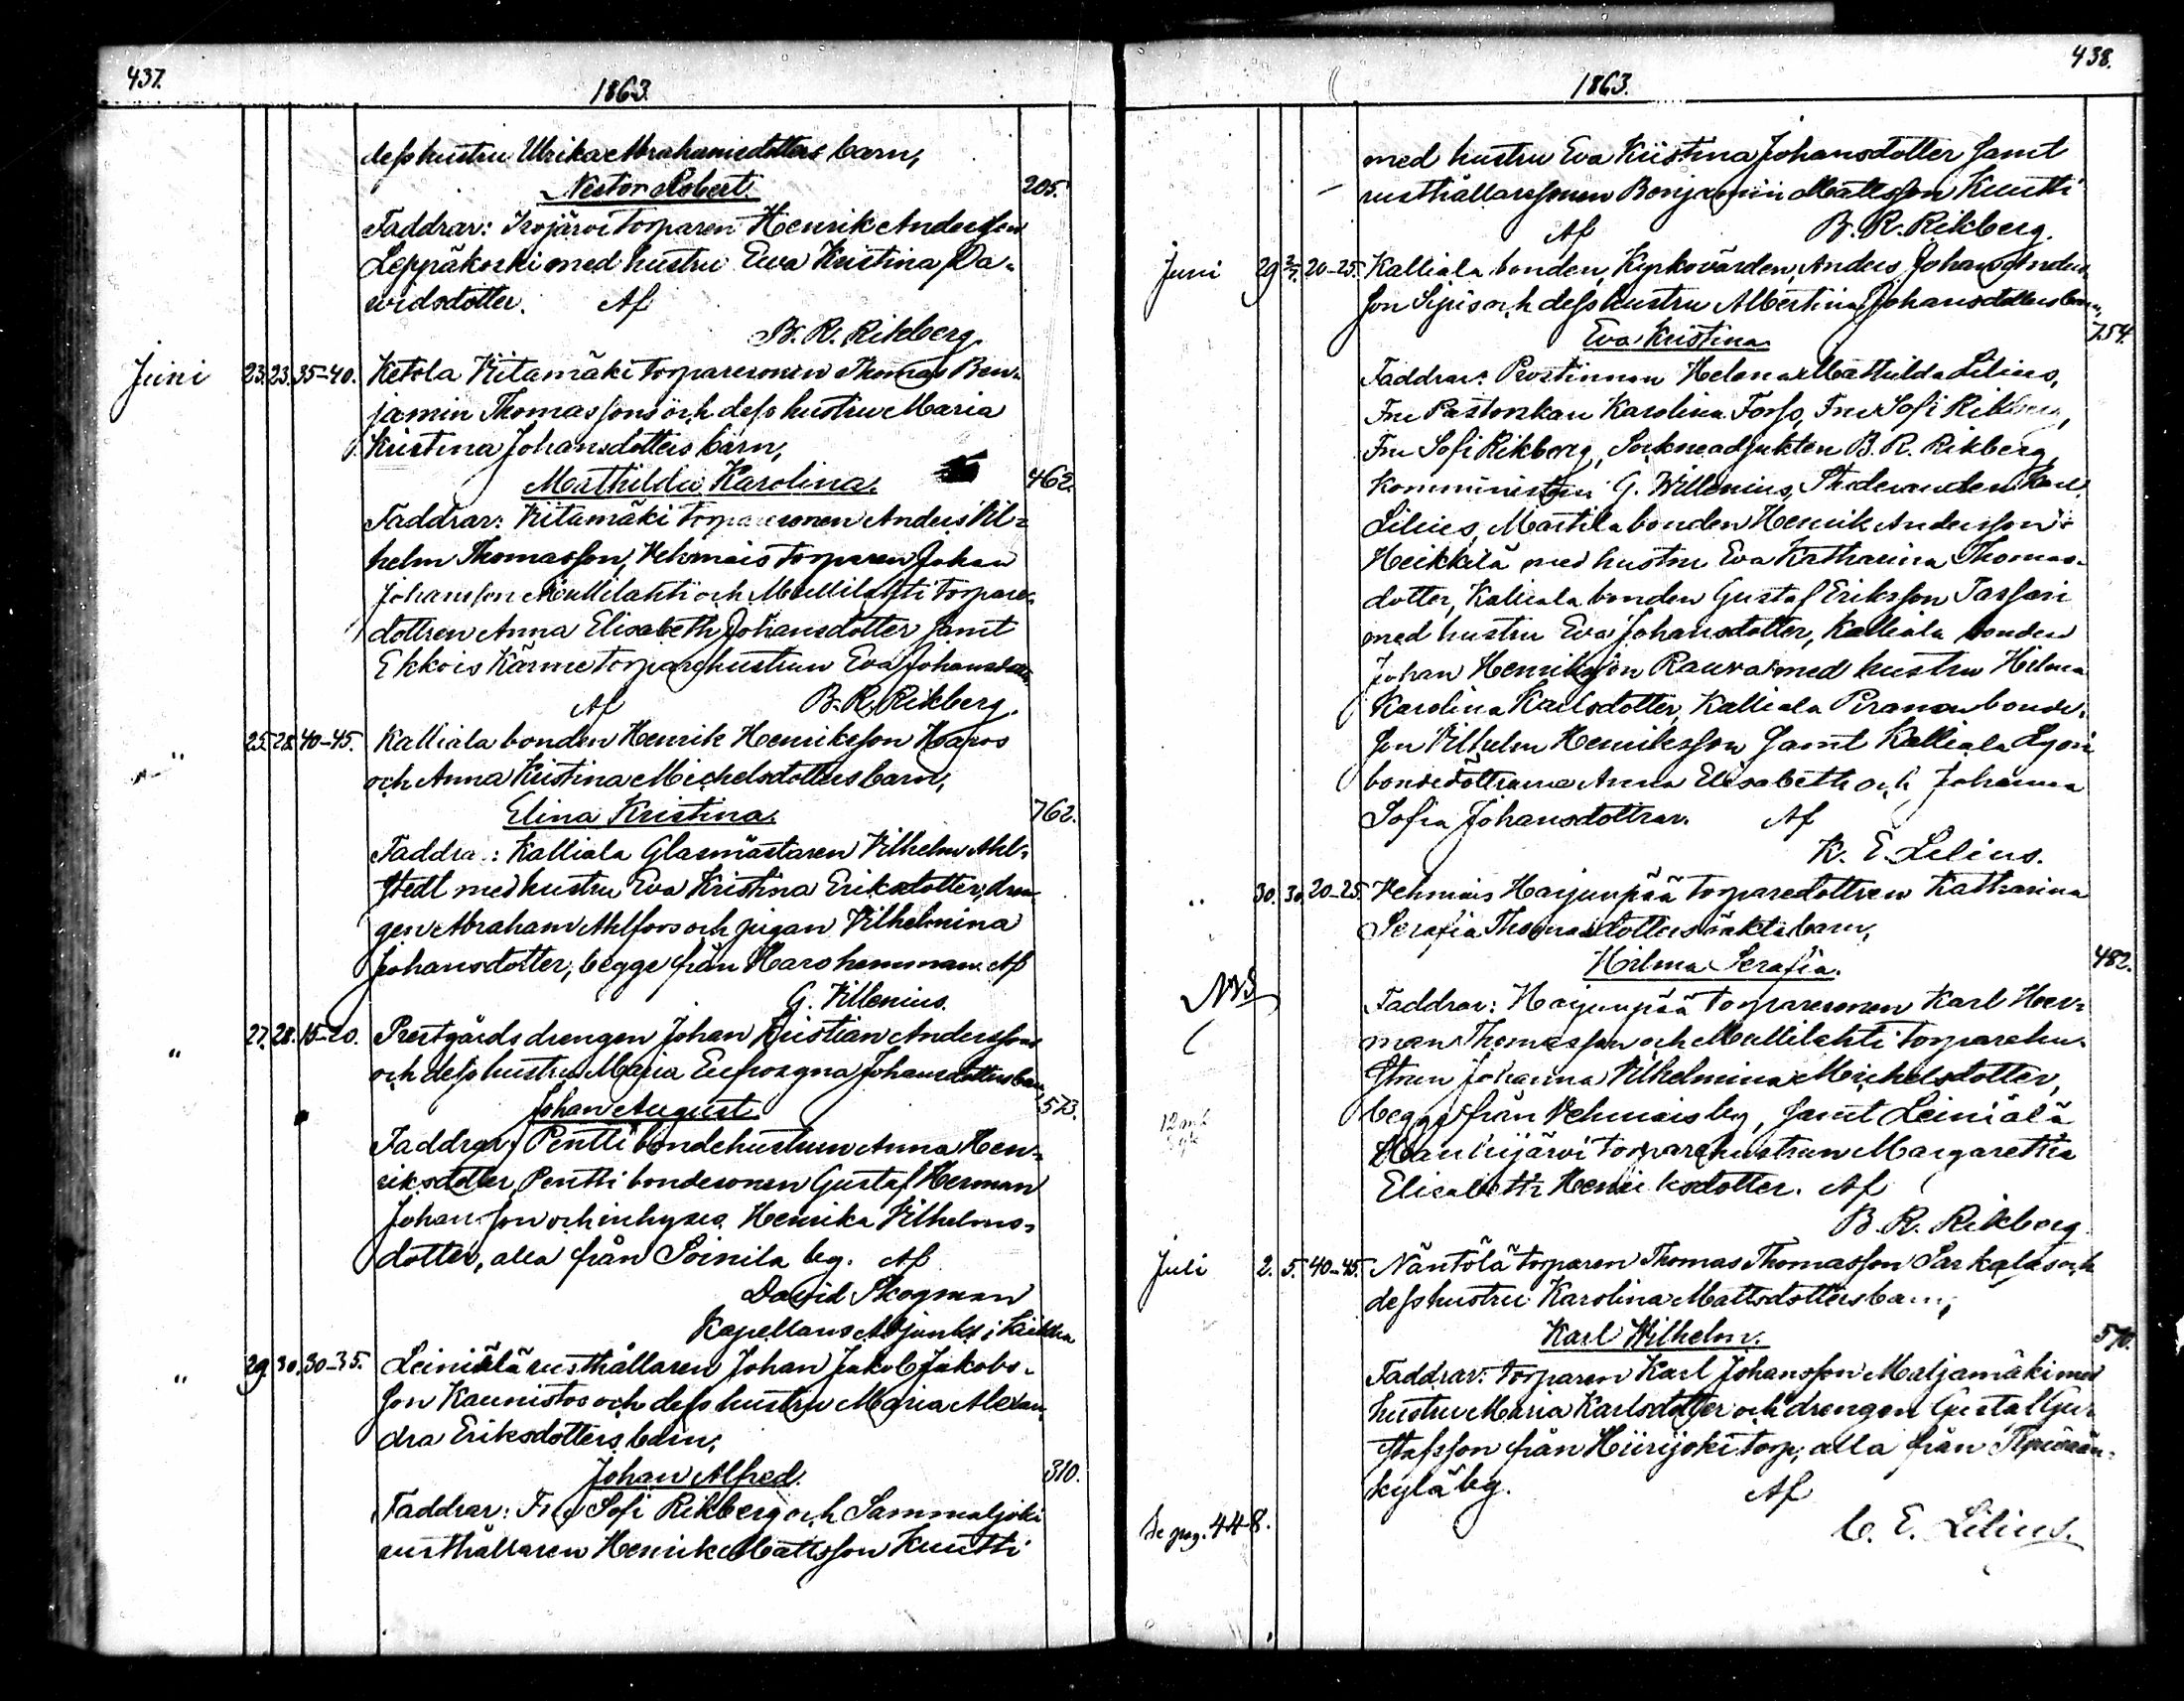 437.
1863.
dess hustru Ulrika Abrahamsdotters barn,
Nestor Robert. 205.
Faddrar: Isojärvi torparen Henrik Andersson
Leppäkoski med hustru Ewa Kristina Da-
vidsdotter. Af
B. R. Rikberg.
Juni 23. 23. 35-40. Ketola Kiitamäki torparesonen Thomas Ben-
jamin Thomassons och dess hustru Maria
Kristina Johansdotters barn,
Mathilda Karolina. 462.
Faddrar: Kiitamäki torparesonen Anders Vil-
helm Thomasson, Vehmais torparen Johan
Johansson Mullilahti och Mullilahti torpare-
dottren Anna Elisabeth Johansdotter samt
Ekkois Kärme torparehustrun Eva Johansdotter.
Af B. R. Rikberg.
" 25. 28. 40-45. Kalliala bonden Henrik Henriksson Haros
och Anna Kristina Michelsdotters barn,
Elina Kristina. 762.
Faddrar: Kalliala Glasmästaren Vilhelm Ahl-
stedt med hustru Eva Kristina Eriksdotter, dren-
gen Abraham Ahlfors och pigan Vilhelmina
Johansdotter, begge från Haro hemman. Af
G. Villenius.
" 27. 28. 15-20. Prestgårds drengen Johan Kristian Anderssons
och dess hustru Maria Eufrosyna Johansdotters barn,
Johan August. 573.
Faddrar: Pentti bondehustrun Anna Hen-
riksdotter, Pentti bondesonen Gustaf Herman
Johansson och inhyses Henrika Vilhelms-
dotter, alla från Soinila by. Af
David Skogman
Kapellans Adjunkt i
" 29. 30. 30-35. Leiniälä rusthållaren Johan Jakob Jakobs-
son Kaunistos och dess hustru Maria Alexan-
dra Eriksdotters barn,
Johan Alfred. 310.
Faddrar: Fru Sofi Rikberg och Sammaljoki
rusthållaren Henrik Mattsson Kuutti
438.
1863.
med hustru Eva Kristina Johansdotter samt
rusthållaressonen Benjamin Mattsson Kuutti
Af B. R. Rikberg.
Juni 29 20-25. Kalliala bonden, Kyrkovärden, Anders Johan Anders-
son Sipis och dess hustru Albertina Johansdotters barn,
Eva Kristina. 754.
Faddrar: Prostinnan Helena Mathilda Lilius,
Fru Pastorskan Karolina Forss, Fru Sofi Rikberg,
Fru Sofi Rikberg, Sockneadjunkten B. R. Rikberg,
Komministern G. Willenius, Studeranden Karl
Lilius, Märtilä bonden Henrik Andersson
Heikkilä med hustru Eva Katharina Thomas-
dotter, Kalliala bonden Gustaf Eriksson Tassari
med hustru Eva Johansdotter, Kalliala bonden
Johan Henriksson Rauva med hustru Hilma
Karolina Karlsdotter, Kalliala bonde-
son Vilhelm Henriksson samt Kalliala
bondedöttrarne Anna Elisabeth och Johanna
Sofia Johansdöttrar. Af
K. E. Lilius.
" 30. 30. 20-25. Vehmais Harjunpää torparedottren Katharina
Serafia Thomasdotters oäkta barn,
Hilma Serafia. 482.
Faddrar: Harjunpää torparesonen Karl Her-
man Thomasson och Mullilahti torparehu-
strun Johanna Vilhelmina Michelsdotter,
begge från Vehmais by, samt Leiniälä
Haukijärvi torparehustrun Margaretha
Elisabeth Henriksdotter. Af
B. R. Rikberg.
Juli 2. 5. 40-45. Näntölä torparen Thomas Thomasson Sarkalas och
dess hustru Karolina Mattsdotters barn,
Karl Wilhelm. 570.
Faddrar: torparen Karl Johansson Marjamäki med
hustru Maria Karlsdotter och drengen Gustaf Gu-
stafsson från Hiirijoki torp, alla från
kylä by. Af
Se pag. 448. C. E. Lilius.